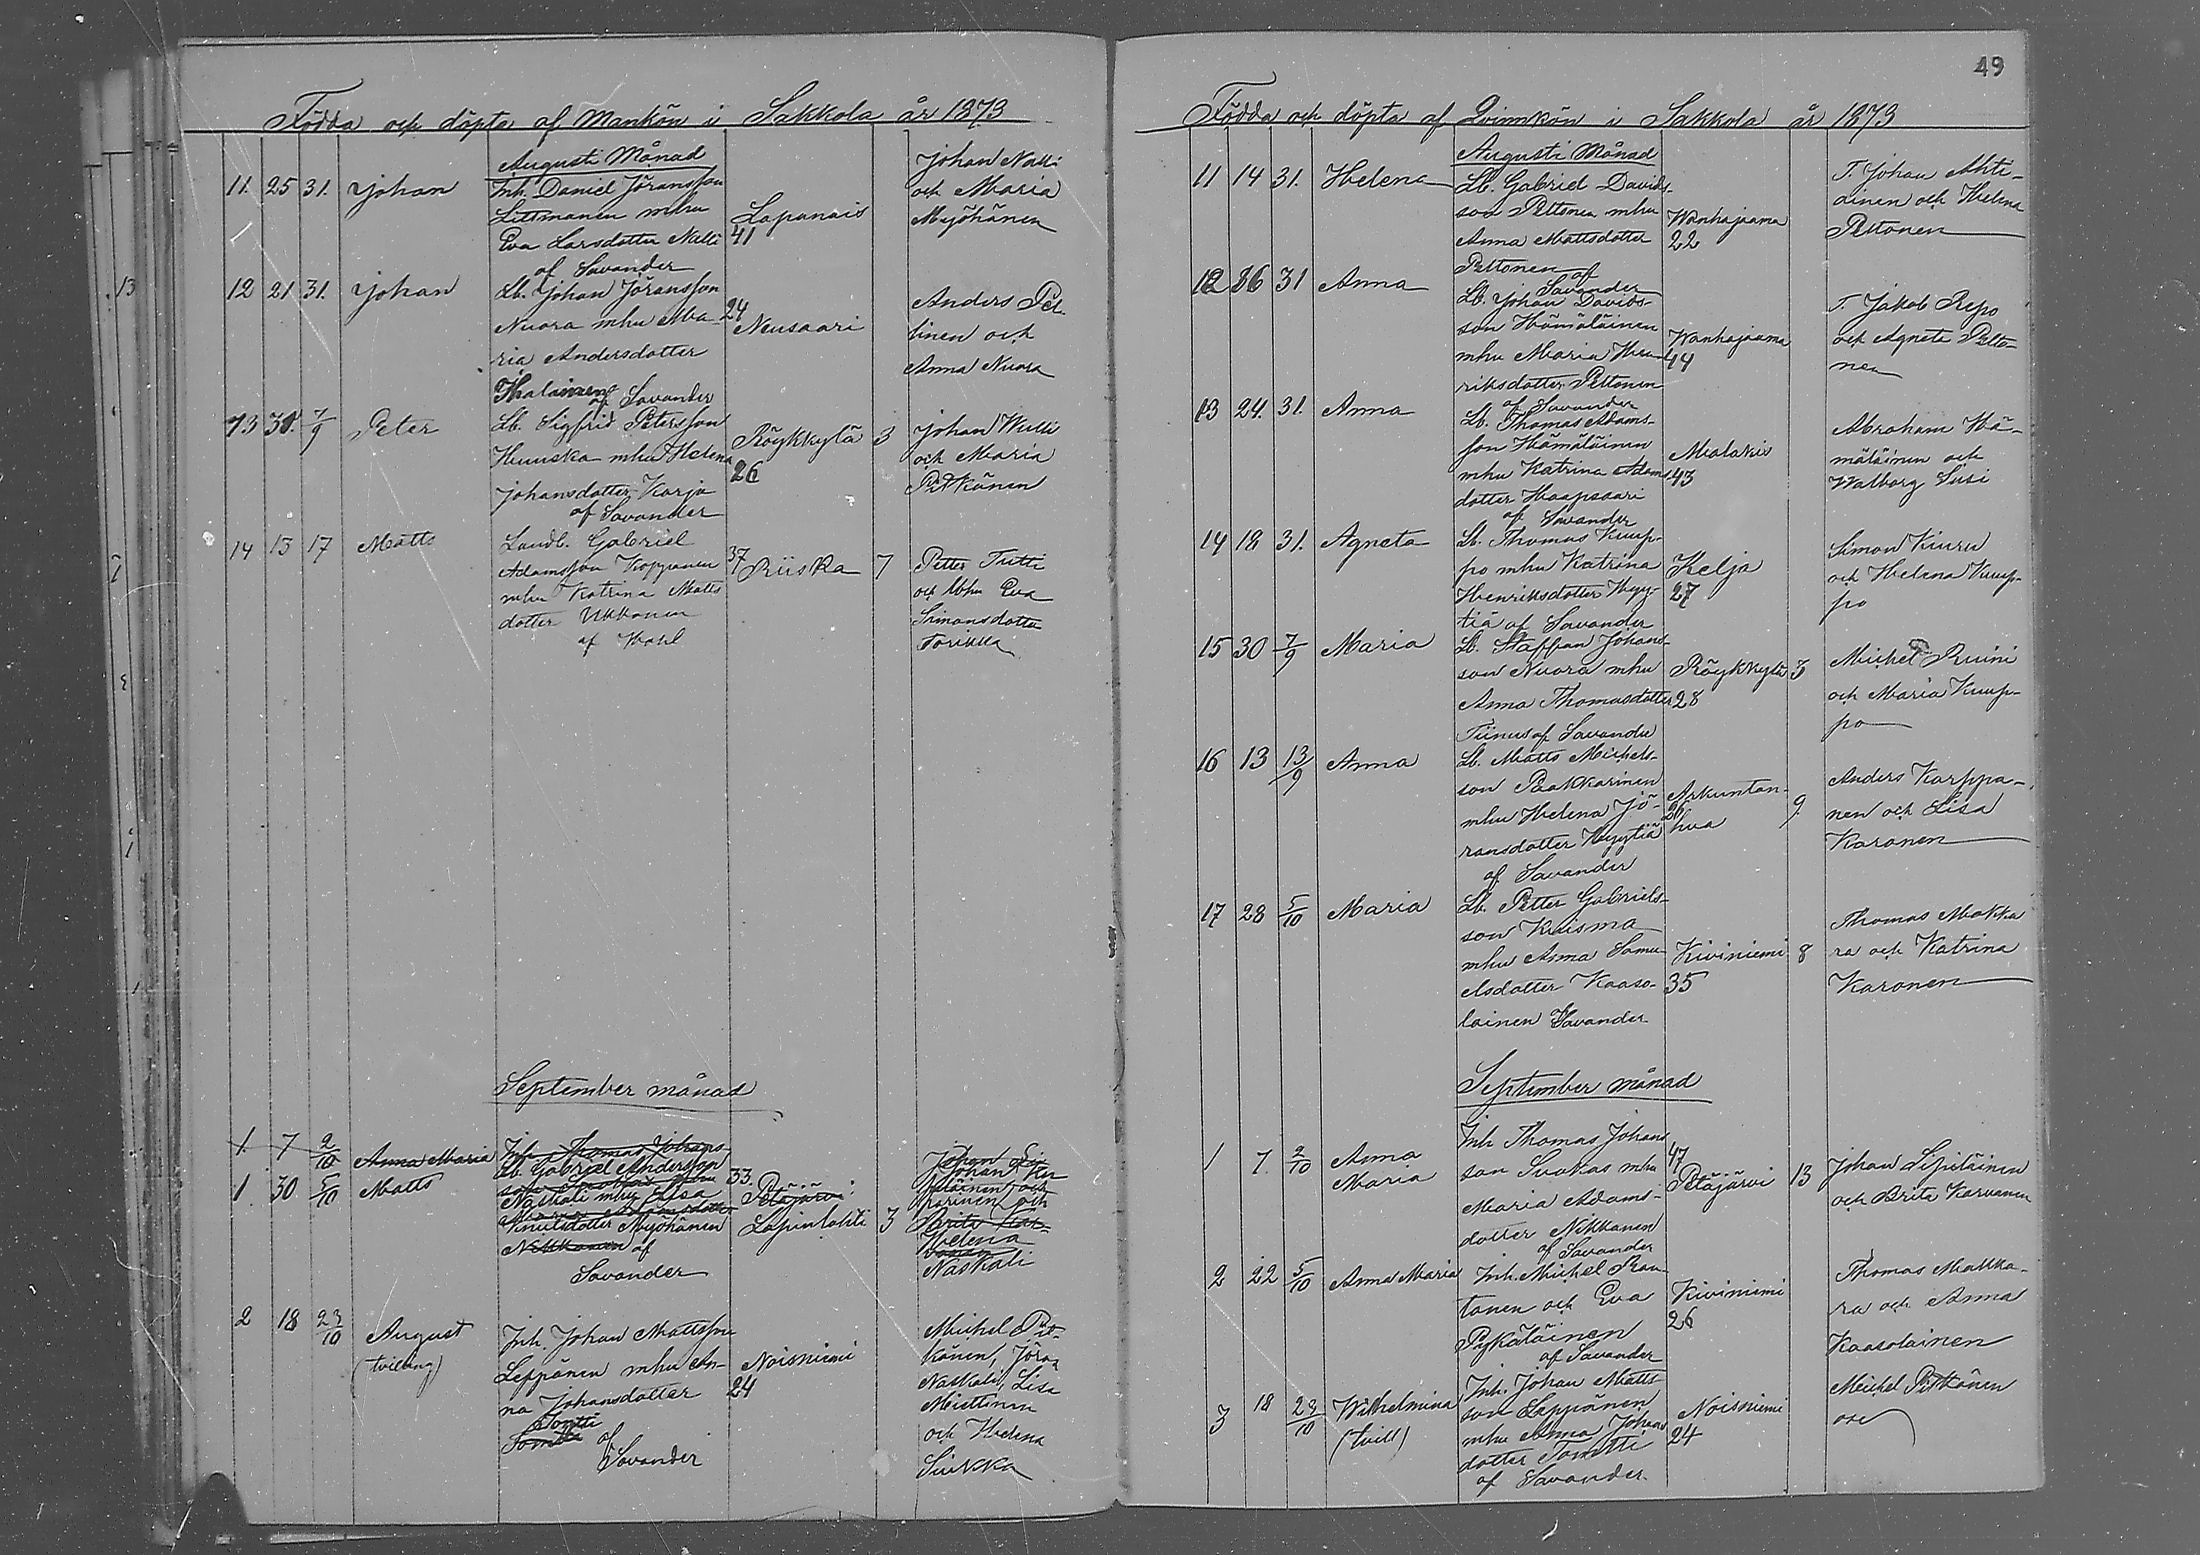 Födda och döpta af Mankön i Sakkola år 1873
Augusti Månad
11. 25 31. Johan
Inh. Daniel Jöransson
Littmanen mhu
Eva Larsdotter Nalli
af Savander
Lapanais
41
Johan Nalli
och Maria
Myöhänen
12 21 31. Johan
Lb. Johan Jöransson
Nuora mhu Ma-
ria Andersdotter
Ihalainen
af Savander
24
Neusaari
Anders Pel-
linen och
Anna Nuora
13 31. 7/9 Peter
Lb. Sigfrid Petersson
Huuska mhu Helena
Johansdotter Karja
af Savander
Röykkylä 3
26
Johan Wulli
och Maria
Pitkänen
14 13 17 Matts
Landb. Gabriel
Adamsson Kopponen
mhu Katrina Matts
dotter Ukkonen
af Wahl
37
Riiska 7
Petter Tutti
och hhu Eva
Simonsdotter
Torikka
September månad
1. 7 2/10 Anna Maria
Inh. Thomas Johans
1. 30. 5/10 Matts
Lb. Gabriel Andersson
Naskali mhu Elsa
Adamsdotter
Myöhänen
Nikkanen af
Savander
33.
Petäjärvi
Lapinlahti 3
Johan
Johan
och
Brita
Helena
Naskali
2 18 23/10 August
(tvilling)
Inh. Johan Mattsson
Leppänen mhu An-
na Johansdotter
Tontti
af
Savander
Noisniemi
24
Michel Pit-
känen, Jöran
Naskali, Lisa
Miettinen
och Helena
Sirkka
49
Födda och döpta af Qvinnkön i Sakkola år 1873
Augusti Månad
11 14 31. Helena
Lb. Gabriel Davids-
son Peltonen mhu
Anna Mattsdotter
Peltonen af
Savander
Wanhajaama
22
T. Johan Ahti-
ainen och Helena
Peltonen
12 26 31 Anna
Lb. Johan Davids-
son Hämäläinen
mhu Maria Hen-
riksdotter Peltonen
af Savander
Wanhajaama
44
T. Jakob Repo
och Agneta Pelto-
nen
13 24. 31. Anna
Lb. Thomas Adams-
son Hämäläinen
mhu Katrina Adams
dotter Haapsaari
af Savander
Malakis
43
Abraham Hä-
mäläinen och
Walborg Susi
14 18 31. Agneta
Lb. Thomas Kuup-
po mhu Katrina
Henriksdotter Hyy-
tiä af Savander
Kelja
27
Simon Kiuru
och Helena Kuup-
po
15 30 7/9 Maria
Lb. Staffan Johans-
son Nuora mhu
Anna Thomasdotter
Tiinus af Savander
Röykkylä 3
28
Michel Ruini
och Maria Kuup-
po
16 13 13/9 Anna
Lb. Matts Michels-
son Paakkarinen
mhu Helena Jö-
ransdotter Hyytiä
af Savander
Arkuntan-
hua 9.
Anders Karppa-
nen och Lisa
Karonen
17 28 5/10 Maria
Lb. Petter Gabriels-
son Kuisma
mhu Anna Samu-
elsdotter Kaaso-
lainen Savander
Kiviniemi 8
35
Thomas Makka
ra och Katrina
Karonen
September månad
1 7. 2/10 Anna
Maria
Inh Thomas Johans
son Suokas mhu
Maria Adams-
dotter Nikkanen
af Savander
47
Petäjärvi 13
Johan Lipiäinen
och Brita Karvanen
2 22 5/10 Anna Maria
Inh. Michel Rau
tanen och Eva
Pykäläinen
af Savander
Kiviniemi
26
Thomas Makka-
ra och Anna
Kaasolainen
3 18 23/10 Wilhelmina
(tvill)
Inh. Johan Matts
son Leppänen
mhu Anna Johans
dotter Tontti
af Savander
Noisniemi
24
Michel Pitkänen